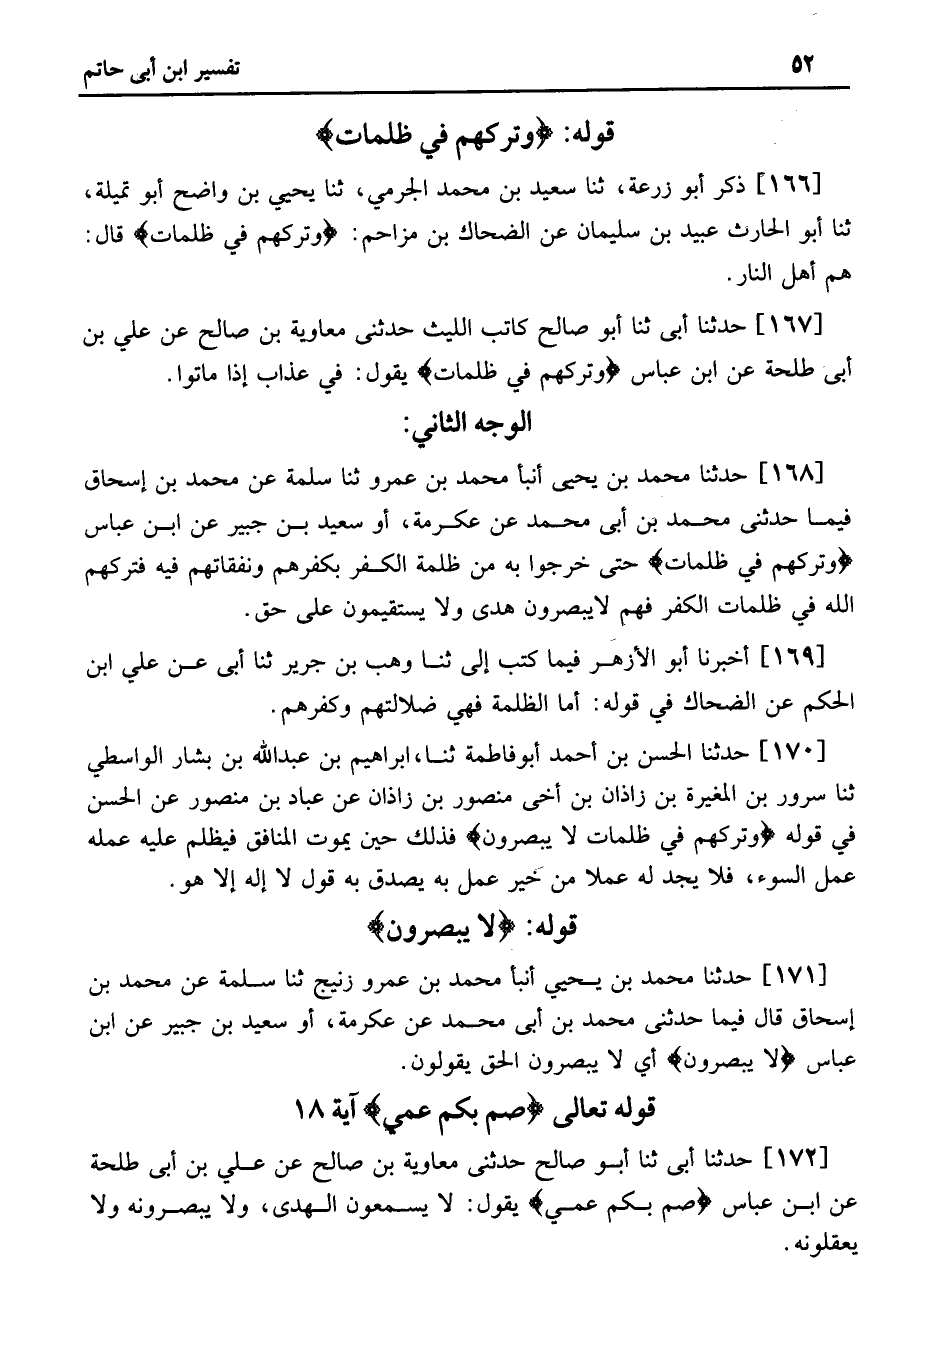 ٥٢
تفسير ابن أبى حاتم
قوله: ﴿وتركهم في ظلمات﴾
[١٦٦] ذكر أبو زرعة، ثنا سعيد بن محمد الجرمي، ثنا يحيي بن واضح أبو تميلة،
ثنا أبو الحارث عبيد بن سليمان عن الضحاك بن مزاحم: ﴿وتركهم في ظلمات﴾ قال:
هم أهل النار.
[١٦٧] حدثنا أبى ثنا أبو صالح كاتب الليث حدثنى معاوية بن صالح عن علي بن
أبى طلحة عن ابن عباس ﴿وتركهم في ظلمات﴾ يقول: في عذاب إذا ماتوا.
الوجه الثاني:
[١٦٨] حدثنا محمد بن يحيى أنبأ محمد بن عمرو ثنا سلمة عن محمد بن إسحاق
فيمـا حدثنى محـمد بن أبى محـمد عن عكـرمة، أو سعيد بـن جبير عن ابـن عباس
﴿وتركهم في ظلمات﴾ حتى خرجوا به من ظلمة الكـفر بكفرهم ونفقاتهم فيه فتركهم
الله في ظلمات الكفر فهم لايبصرون هدى ولا يستقيمون على حق.
[١٦٩] أخبرنا أبو الأزهـر فيما كتب إلى ثنـا وهب بن جرير ثنا أبى عـن علي ابن
الحكم عن الضحاك في قوله: أما الظلمة فهي ضلالتهم وكفرهم.
[١٧٠] حدثنا الحسن بن أحمد أبوفاطمة ثنـا، ابراهيم بن عبدالله بن بشار الواسطي
ثنا سرور بن المغيرة بن زاذان بن أخى منصور بن زاذان عن عباد بن منصور عن الحسن
في قوله ﴿وتركهم في ظلمات لا يبصرون﴾ فذلك حين يموت المنافق فيظلم عليه عمله
عمل السوء، فلا يجد له عملا من خير عمل به يصدق به قول لا إله إلا هو.
قوله: ﴿لا يبصرون﴾
[١٧١] حدثنا محمد بن يـحيي أنبأ محمد بن عمرو زنيج ثنا سـلمة عن محمد بن
إسحاق قال فيما حدثنى محمد بن أبى محـمد عن عكرمة، أو سعيد بن جبير عن ابن
عباس ﴿لا يبصرون﴾ أي لا يبصرون الحق يقولون.
قوله تعالى ﴿صم بكم عمي﴾ آية ١٨
[١٧٢] حدثنا أبى ثنا أبـو صالح حدثنى معاوية بن صالح عن عـلي بن أبى طلحة
عن ابـن عباس ﴿صم بـكم عمـي﴾ يقول: لا يسـمعون الـهدى، ولا يبصـرونه ولا
يعقلونه.